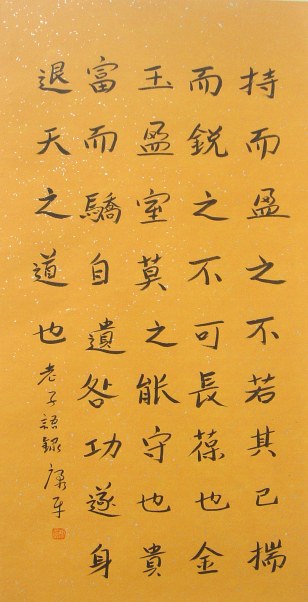 持而盈之不若其已揣
而銳之不可長葆也金
玉盈室莫之能守也貴
富而驕自遺咎功遂身
退天之道也
老子語錄 康平